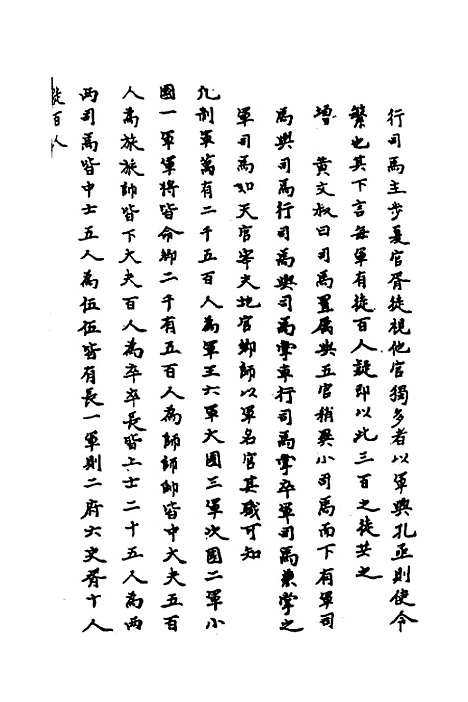 行司馬主步夏官胥徒視他官獨多者以軍興孔亟則使令
繁也其下言每軍有徒百人疑即以此三百之徒共之
增　黄文叔曰司馬置属與五官稍異小司馬而下有軍司
馬與司馬行司馬與司馬掌車行司馬掌卒軍司馬兼掌之
軍司馬如天官宰夫地官鄉師以軍名官其職可知
凡制軍萬有二千五百人為軍王六軍大國三軍次國二軍小
國一軍軍將皆命卿二千有五百人為師師帥皆中大夫五百
人為旅旅師皆下大夫百人為卒卒長皆上士二十五人為兩
兩司馬皆中士五人為伍伍皆有長一軍則二府六史胥十人
徒百人